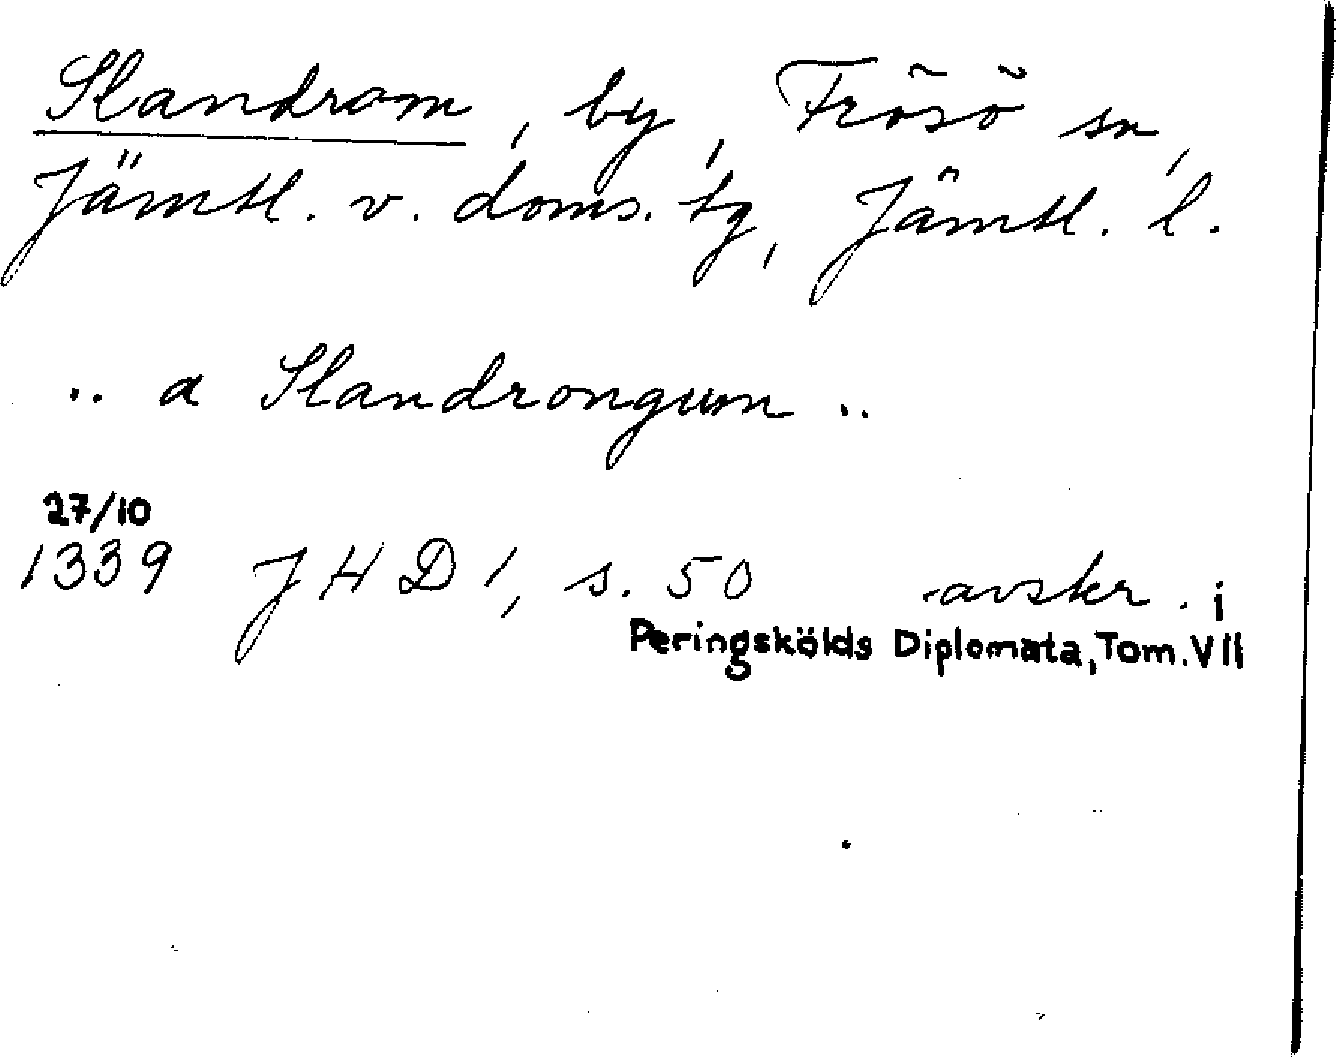 Slandrom, by, Frösö sn,
Jämtl. v. doms. tg, Jämtl. l.
.. a Slandrongum ..
27/10
1339 JHD 1, s. 50 avskr. i
Peringskölds Diplomata, Tom. VII